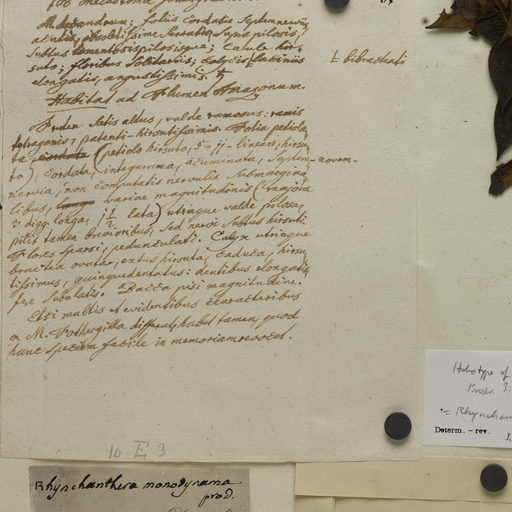 foliis cordatis septemnerviis
suto; floribus solitariis; calycis laciniis
elongatis, angustissimis. ┼ bibracteati
Habitat ad Flumen Amazonum.
Frutex satis altus, valde ramosus: ramis
tetragonis patenti-hirsutissimis. Folia petiola
ta cordata (petiolo hirsuto, 5-7-lineari, hirsu
to), cordata, integerrima, acuminata, septem-novem-
nervia, non computatis nervulis submargina
libus, variae magnitudinis (majora
3 digg. longa, 1 1/2 lata) utrinque valde pilosa,
pilis tamen brevioribus, sed nervi subtus hirsuti
Flores sparsi, pedunculati. Calyx utrinque
bractea ovata, extus hirsuta, caduca, hirsu
tissimus, quinquedentatus: dentibus elongatis
fere subulatis. Bacca pisi magnitudine.
Etsi multis et evidentibus characteribus
a M. Fothergilla differat, habet tamen, quod
hanc speciem facile in memoriam revocet.
10 E 3
Rhynchanthera monodynama
prod.
Holotype of
Prodr. 3:
= Rhynchan
Determ. – rev.